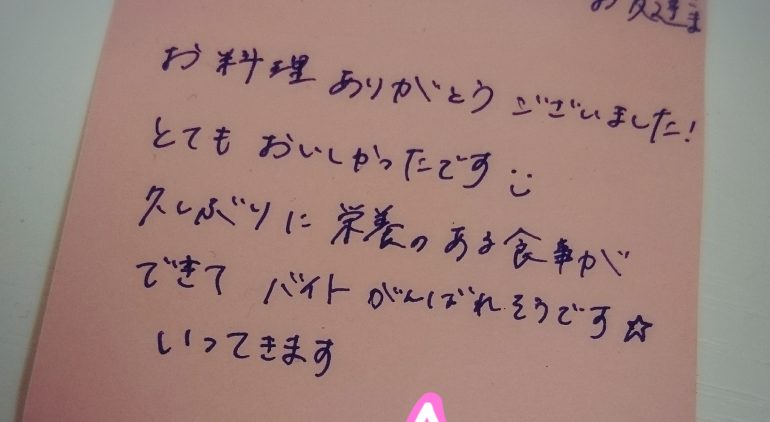 お友達ま
お料理 ありがとう ございました!
とても おいしかったです
久しぶりに 栄養の ある 食事が
できて バイト がんばれそうです☆
いってきます